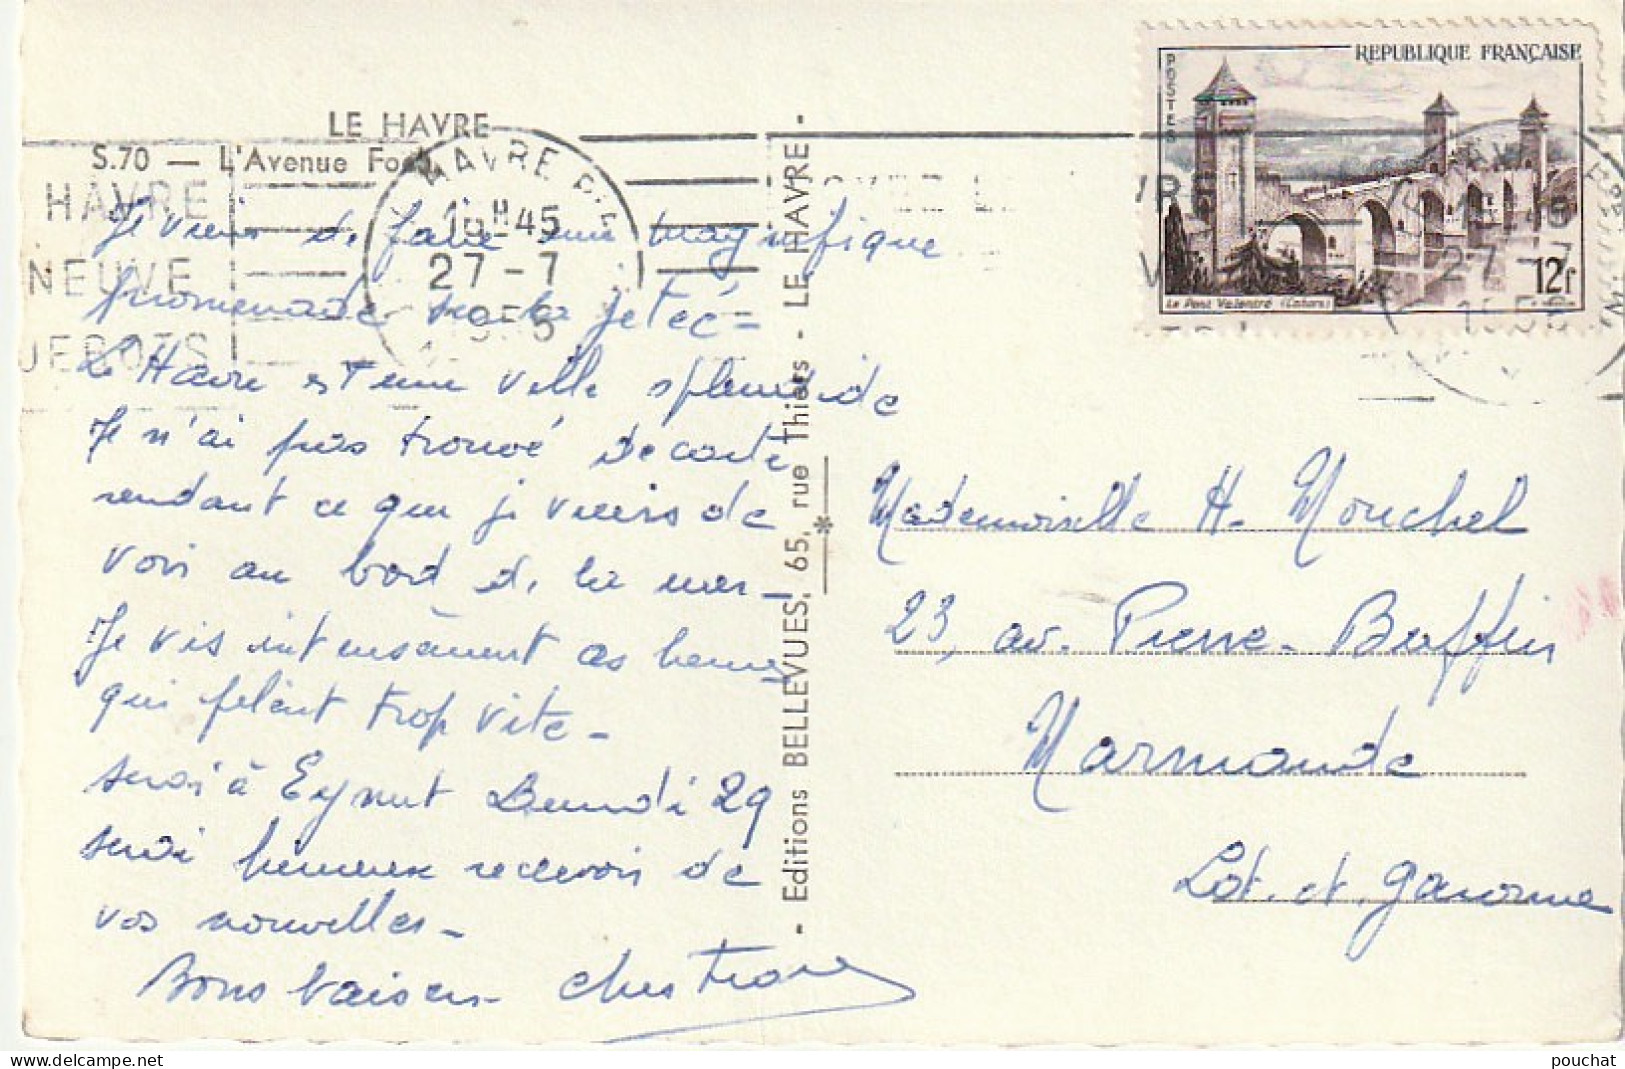 LE HAVRE
S.70 — L'Avenue Foch
HAVRE
NEUVE
HAVRE
45
27-7
Je viens de faire une magnifique
promenade sur la jetée -
Le Havre est une ville splendide
Je n'ai pas trouvé de carte
rendant ce que je viens de
voir au bord de la mer -
Je vis intensément ces heures
qui filent trop vite -
serai à Eymet Lundi 29
serai heureux recevoir de
vos nouvelles -
Bons baisers
- Editions BELLEVUES, 65, rue Thiers - LE HAVRE -
REPUBLIQUE FRANÇAISE
POSTES
Le Pont Valentré (Cahors)
12f
27-7
Mademoiselle H. Mouchel
23, av. Pierre-Buffin
Marmande
Lot. et. Garonne
pouchat